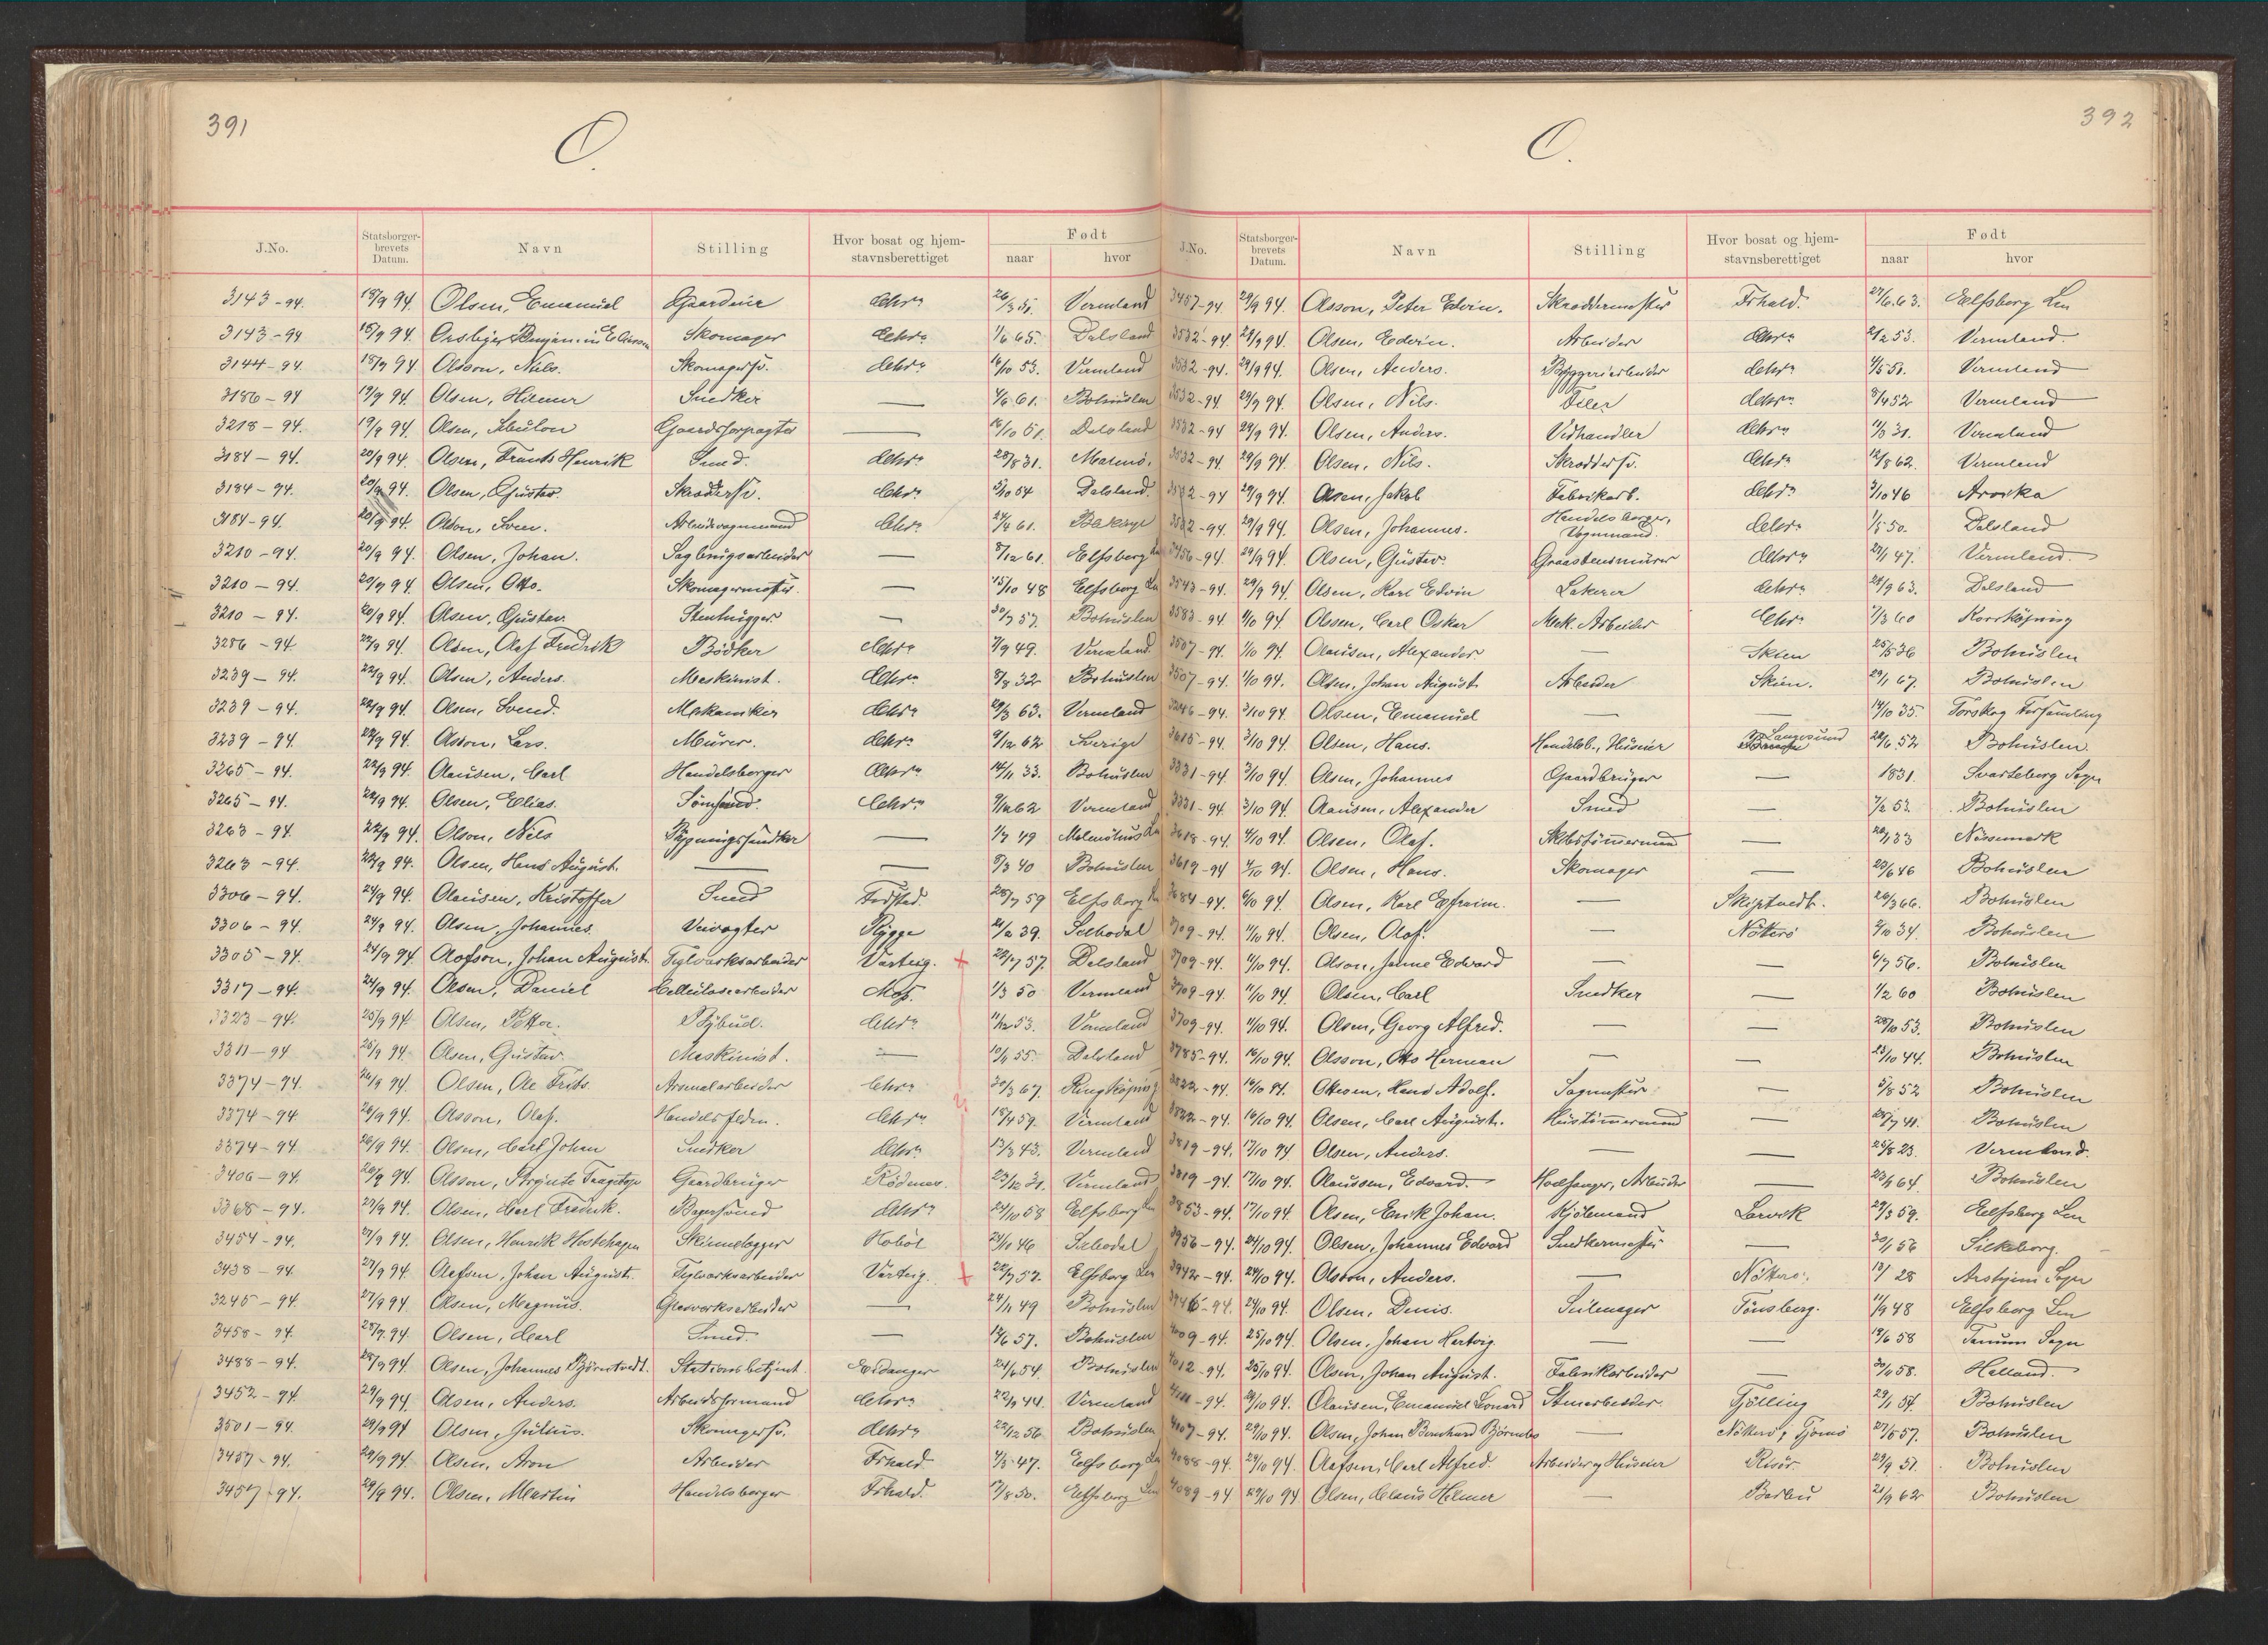 391
O.
J.No. Statsborger-brevets Datum. Navn Stilling Hvor bosat og hjem-stavnsberettiget Født naar hvor
3143-94. 18/9 94. Olsen, Emanuel Gaardeier Chra 26/3 31. Vermland
3143-94 18/9 94. Skomager Chra 1/6 65. Dalsland
3144-94. 18/9 94. Olsson, Nils. Skomagersv. Chra 16/10 53. Vermland
3186-94 19/9 94. Olsen, Hilmer Snedker — 4/6 61. Bohuslen
3218-94. 19/9 94. Olsen, Gaardsforpagter — 16/10 51. Dalsland
3184-94. 20/9 94. Olsen, Frants Henrik Smed. Chra 28/8 31. Malmö.
3184-94. 20/9 94. Olsen, Gustav. Skræddersv. Chra 3/10 54 Dalsland.
3184-94. 20/9 94. Olson, Sven. Arbeidsvognmand Chra 24/4 61.
3210-94. 20/9 94. Olsen, Johan. Sagbrugsarbeider — 8/12 61. Elfsborg Len
3210-94. 20/9 94. Olsen, Otto. Skomagermester. — 15/10 48 Elfsborg Len
3210-94. 20/9 94. Olsen, Gustav. Stenhugger. — 30/7 57. Bohuslen
3286-94. 22/9 94. Olsen, Olaf Fredrik Bödker Chra 7/9 49. Vermland
3239-94. 22/9 94. Olsen, Anders. Maskinist. Chra 8/8 32 Bohuslen
3239-94. 22/9 94. Olsen, Svend. Mekaniker Chra 29/3 63. Vermland
3239-94. 22/9 94. Olsson, Lars. Murer. Chra 9/12 62 Sverige
3265-94. 22/9 94. Olausen, Carl Handelsborger Chra 14/11 33. Bohuslen
3265-94. 22/9 94. Olsen, Elias. Chra 9/12 62 Vermland
3263-94. 22/9 94. Olson, Nils Bygningssnedker — 1/7 49 Malmöhus Len
3263-94. 22/9 94. Olsen, Hans August. — — 8/3 40 Bohuslen
3306-94. 24/9 94. Olausen, Kristoffer Smed 28/7 59 Elfsborg Len
3306-94. 24/9 94. Olsen, Johannes. Veivogter Rygge 21/2 39. Sælbodal
3305-94. 24/9 94. Olofson, Johan August. Teglværksarbeider Varteig. + 22/7 57. Dalsland
3317-94. 24/9 94. Olsen, Daniel Cellulosearbeider Moss. 1/3 50 Vermland
3323-94. 25/9 94. Olsen, Petter. Bybud. Chra 11/12 53. Vermland
3311-94 26/9 94. Olsen, Gustav Maskinist. — 10/4 55. Dalsland
3374-94. 26/9 94. Olsen, Ole Frits. Arsenalarbeider Chra 30/3 67.
3374-94. 26/9 94. Olsson, Olaf. Chra 18/4 59. Vermland
3374-94. 26/9 94. Olsen, Carl Johan Snedker Chra 13/3 43. Vermland
3406-94. 26/9 94. Olsson, Gaardbruger Rödenes. 23/12 31. Vermland
3368-94. 27/9 94. Olsen, Carl Fredrik. Bagersvend Chra 24/10 58 Elfsborg Len
3454-94. 27/9 94. Olsen, Henrik Hostehagen Skinnelægger Hoböl 21/10 46 Sælbodal
3438-94 27/9 94. Olafsen, Johan August. Teglværksarbeider Varteig. + 22/7 57. Elfsborg Len
3245-94. 27/9 94. Olsen, Magnus. Glasværksarbeider — 24/11 49 Bohuslen
3458-94. 28/9 94. Olsen, Carl Smed. — 12/6 57. Bohuslen
3488-94. 28/9 94. Olsen, Johannes Björntvedt. Stationsbetjent. Eidanger 24/6 54. Bohuslen
3452-94. 29/9 94. Olsen, Anders. Arbeidsformand Chra 22/9 44. Vermland
3501-94. 29/9 94 Olsen, Julius. Skomagersv. Chra 22/12 56 Bohuslen
3457-94. 29/9 94. Olsen, Aron Arbeider Frhald. 4/5 47. Elfsborg Len
3457-94. 29/9 94. Olsen, Martin Handelsborger Frhald. 17/8 50. Elfsborg Len
392
O.
J.No. Statsborger-brevets Datum. Navn Stilling Hvor bosat og hjem-stavnsberettiget Født naar hvor
3457-94 29/9 94. Olsson, Peter Edvin. Skræddermester Frhald. 27/6 63. Elfsborg Len
3532-94. 29/9 94. Olsen, Edvin. Arbeider Chra 2/12 53. Vermland.
3532-94. 29/9 94. Olsen, Anders. Byggeriarbeider Chra 4/5 51. Vermland
3532-94. 29/9 94. Olsen, Nils. Filer Chra 8/4 52 Vermland
3532-94 29/9 94. Olsen, Anders. Vedhandler Chra 11/3 31. Vermland
3532-94. 29/9 94. Olsen, Nils. Skræddersv. Chra 12/8 62. Vermland
3532-94 29/9 94. Olsen, Jakob Fabrikarb. Chra 3/10 46 Arvika
3532-94. 29/9 94. Olsen, Johannes. Handelsborger, Vognmand. Chra 1/5 50. Dalsland
3456-94. 29/9 94. Olsen, Gustav. Graastensmurer Chra 29/1 47. Vermland.
3543-94. 29/9 94. Olsen, Karl Edvin Lakerer Chra 24/9 63. Dalsland
3583-94 1/10 94. Olssen, Carl Oskar Mek. Arbeider Chra 7/3 60 Norrköping
3507-94. 1/10 94. Olausen, Alexander. — Skien 25/5 36 Bohuslen
3507-94. 1/10 94. Olsen, Johan August. Arbeider Skien. 29/1 67. Bohuslen
3246-94. 3/10 94. Olsen, Emanuel — — 14/10 35. Torskog Forsamling
3615-94. 3/10 94. Olsen, Hans. Handelsb., Huseier Langesund 28/6 52 Bohuslen.
3331-94. 3/10 94. Olsen, Johannes Gaardbruger — 1831. Svarteborg Sogn
3331-94. 3/10 94. Olausen, Alexander Smed — 7/2 53. Bohuslen
3618-94. 4/10 94. Olsen, Olaf. Skibstömmermand — 20/1 33 Nössemark
3619-94 4/10 94. Olsen, Hans. Skomager — 23/6 46 Bohuslen
3684-94. 6/10 94. Olsen, Karl Efraim. — Skiptvedt. 26/3 66. Bohuslen
3709-94. 11/10 94. Olsen, Olaf. — Nötterö 2/10 34. Bohuslen
3709-94. 11/10 94. Olson, Janne Edvard — — 6/7 56. Bohuslen
3709-94. 11/10 94. Olsen, Carl Snedker — 1/2 60 Bohuslen
3709-94. 11/10 94. Olsen, Georg Alfred. — — 28/10 53. Bohuslen
3785-94. 16/10 94. Olsson, Otto Herman — — 23/10 44. Bohuslen
3822-94. 16/10 94. Ottesen, Hans Adolf. Sagmester — 3/8 52 Bohuslen
3822-94. 16/10 94. Olsen, Carl August. Hustömmermand — 28/7 41. Bohuslen
3819-94. 17/10 94. Olsen, Anders. — — 25/8 23. Vermland.
3819-94. 17/10 94. Olaussen, Edvard. Hvalfanger, Arbeider — 23/1 64. Bohuslen
3853-94. 17/10 94. Olsen, Erik Johan. Kjölemand Larvik 29/3 59. Elfsborg Len
3956-94. 24/10 94. Olsen, Johannes Edvard Snedkermester — 30/1 56 Silkeborg.
3942-94. 24/10 94. Olsson, Anders. — Nötterö. 13/1 28
3946-94. 24/10 94. Olsen, Denis. Seilmager Tönsberg. 11/9 48 Elfsborg Len
4009-94. 25/10 94. Olsen, Johan Hartvig. — — 19/6 58 Tanum Sogn
4012-94. 25/10 94. Olsen, Johan August. Fabrikarbeider — 30/4 58. Halland.
29/10 94. Olausen, Emanuel Leonard Stenarbeider Tjölling 29/1 54. Bohuslen
4107-94. 29/10 94. Olsen, Johan Bernhard — Nötterö, Tjömö 27/5 57. Bohuslen
4088-94. 29/10 94. Olafsen, Carl Alfred. Arbeider og Huseier Risör. 29/9 51. Bohuslen
4089-94 29/10 94 Olsen, Claus Hilmer — Barbu 21/9 62 Bohuslen